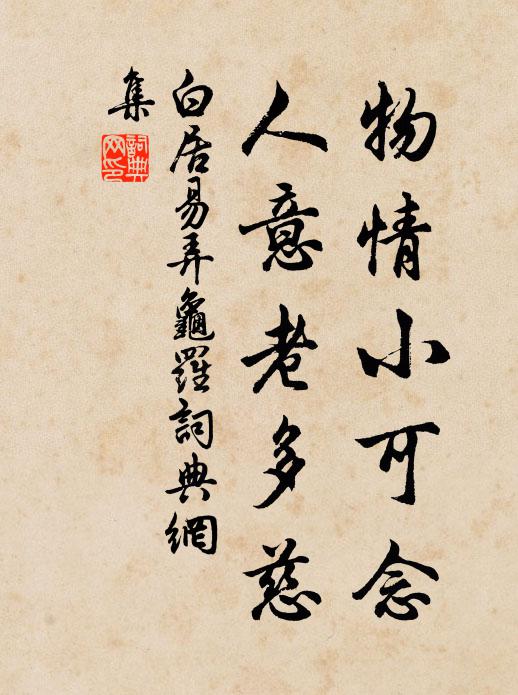 物情小可念
人意老多慈
白居易弄龜羅詞典網
集
詞典
网印